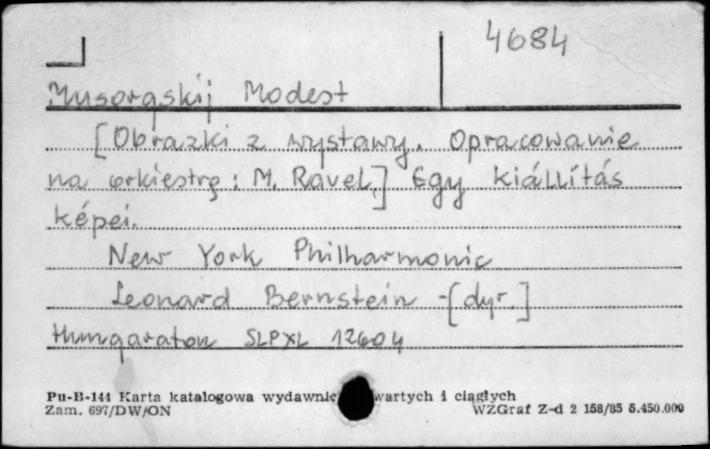 4684
Musorgskij Modest
[Obrazki z wystawy. Opracowanie
na orkiestrę: M. Ravel.] Egy kiállítás
képei.
New York Philharmonic
Leonard Bernstein -[dyr.]
Hungaraton SLPXL 12604
Pu-B-144 Karta katalogowa wydawnic wartych i ciągłych
Zam. 697/DW/ON WZGraf Z-d 2 158/85 5.450.000